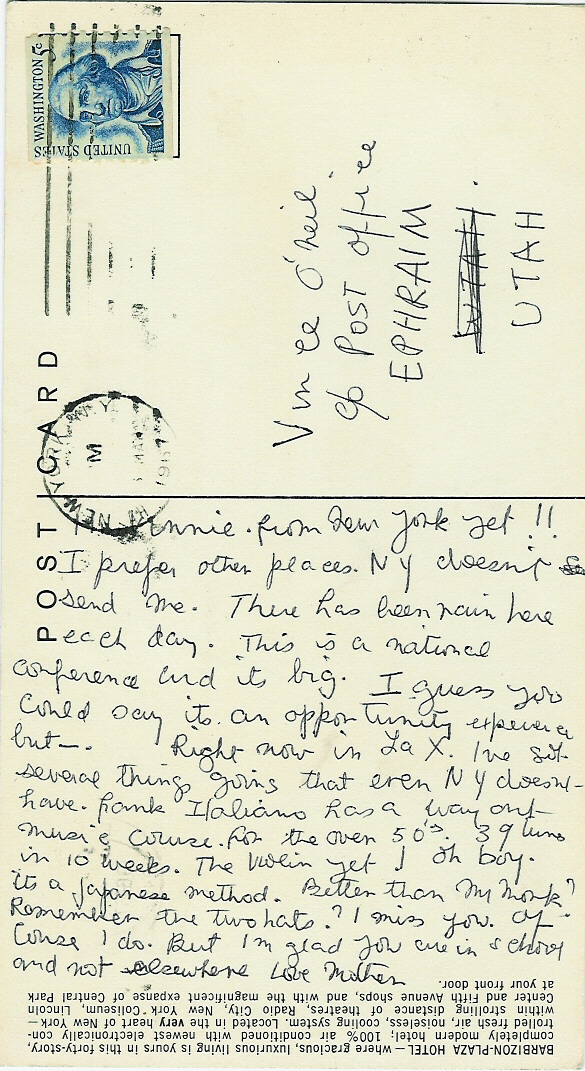 POST CARD
UNITED STATES
WASHINGTON 5c
NEW YORK, N.Y.
1967
Vince O'Neil
c/o POST office
EPHRAIM
UTAH
UTAH
Vinnie. from New York yet!!
I prefer other places. NY doesn't
send me. There has been rain here
each day. This is a national
conference and its big. I guess you
could say its an opportunity experience
but—. Right now in La X. I've got
several things going that even NY doesn't
have. Frank Italiano has a way out
music course. for the over 50's. 39 tunes
in 10 weeks. The Violin yet! oh boy.
its a Japanese method. Better than Mr Monk?
Remember the two hats.? I miss you. of
course I do. But I'm glad you are in school
and not elsewhere Love Mother
BARBIZON-PLAZA HOTEL — where gracious, luxurious living is yours in this forty-story,
completely modern hotel; 100% air conditioned with newest electronically con-
trolled fresh air, noiseless, cooling system. Located in the very heart of New York —
within strolling distance of theatres, Radio City, New York Coliseum, Lincoln
Center and Fifth Avenue shops, and with the magnificent expanse of Central Park
at your front door.